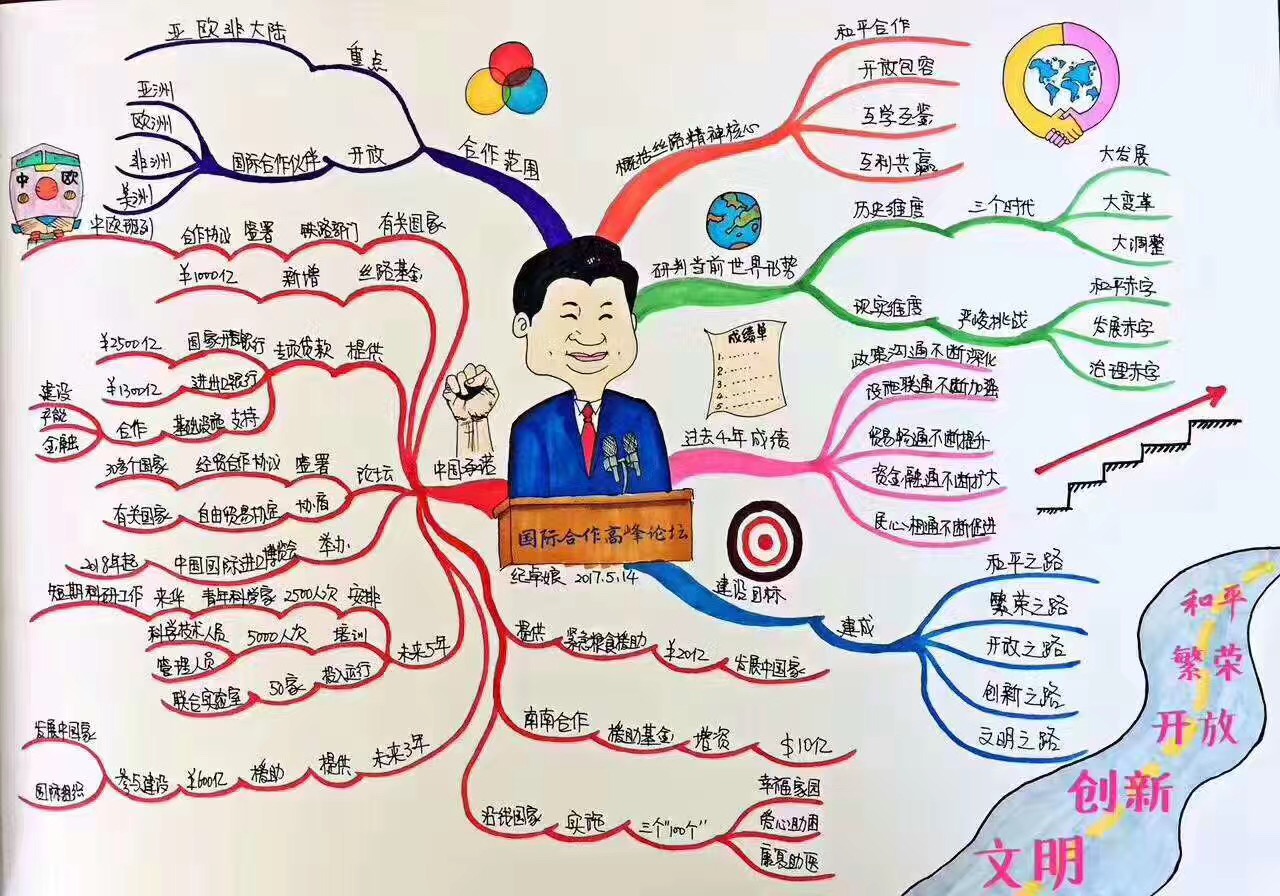 概括丝路精神核心
和平合作
开放包容
互学互鉴
互利共赢
研判当前世界形势
历史维度
三个时代
大发展
大变革
大调整
现实维度
严峻挑战
和平赤字
发展赤字
治理赤字
成绩单
1.
2.
3.
4.
5
过去4年成绩
政策沟通不断深化
设施联通不断加强
贸易畅通不断提升
资金融通不断扩大
民心相通不断促进
建设目标
建成
和平之路
繁荣之路
开放之路
创新之路
文明之路
和平
繁荣
开放
创新
文明
国际合作高峰论坛
2017.5.14
中国承诺
提供 紧急粮食援助 ¥20亿 发展中国家
南南合作 援助基金 增资 $10亿
沿线国家 实施 三个"100个"
幸福家园
爱心助困
康复助医
未来3年 提供 援助 ¥600亿 参与建设
发展中国家
国际组织
未来5年
安排 2500人次 青年科学家 来华 短期科研工作
培训 5000人次
科学技术人员
管理人员
投入运行 50家 联合实验室
举办 中国国际进口博览会 2018年起
论坛
签署 经贸合作协议 30多个国家
协商 自由贸易协定 有关国家
提供 专项贷款
国家开发银行 ¥2500亿
进出口银行 ¥1300亿
支持 基础设施 合作
建设
产能
金融
丝路基金 新增 ¥1000亿
有关国家 铁路部门 签署 合作协议 中欧班列
中 欧
合作范围
重点
亚欧非大陆
开放 国际合作伙伴
亚洲
欧洲
非洲
美洲